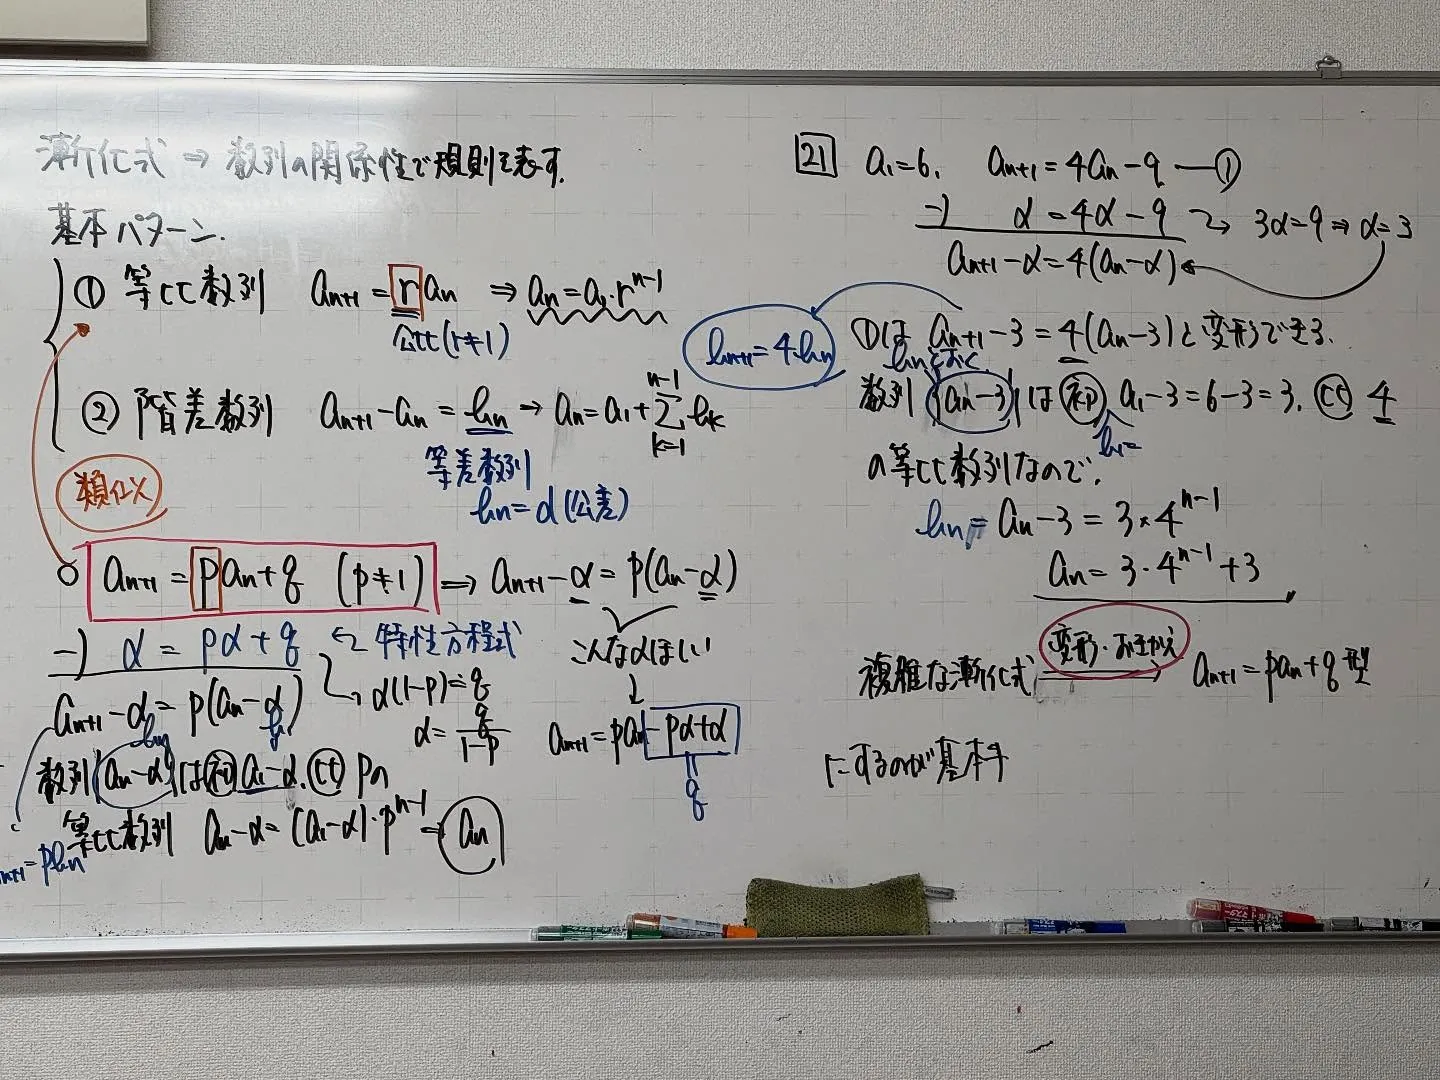 漸化式 ⇒ 数列の関係性で規則を表す.
基本パターン.
① 等比数列 an+1 = r an ⇒ an = a1・r^n-1
公比(r≠1)
② 階差数列 an+1 - an = bn → an = a1 + Σ bk
n-1
k=1
等差数列
bn = d (公差)
類似
○ an+1 = pan + q (p≠1) ⇒ an+1 - α = p(an - α)
-) α = pα + q ← 特性方程式
こんなαほしい
an+1 - α = p(an - α)
α(1-p) = q
α = q/1-p
an+1 = pan - pα + α
q
bn
数列{an - α}は初 a1 - α. 比 pの
等比数列 an - α = (a1 - α)・p^n-1 → an
n+1 = pbn
21 a1 = 6, an+1 = 4an - 9 ―①
-) α = 4α - 9 → 3α = 9 ⇒ α = 3
an+1 - α = 4(an - α)
bn+1 = 4・bn
①は an+1 - 3 = 4(an - 3) と変形できる.
bnとおく
数列{an - 3}は初 a1 - 3 = 6 - 3 = 3. 比 4
b1=
の等比数列なので,
bn = an - 3 = 3 × 4^n-1
an = 3・4^n-1 + 3
変形・おきかえ
複雑な漸化式 → an+1 = pan + q 型
にするのが基本